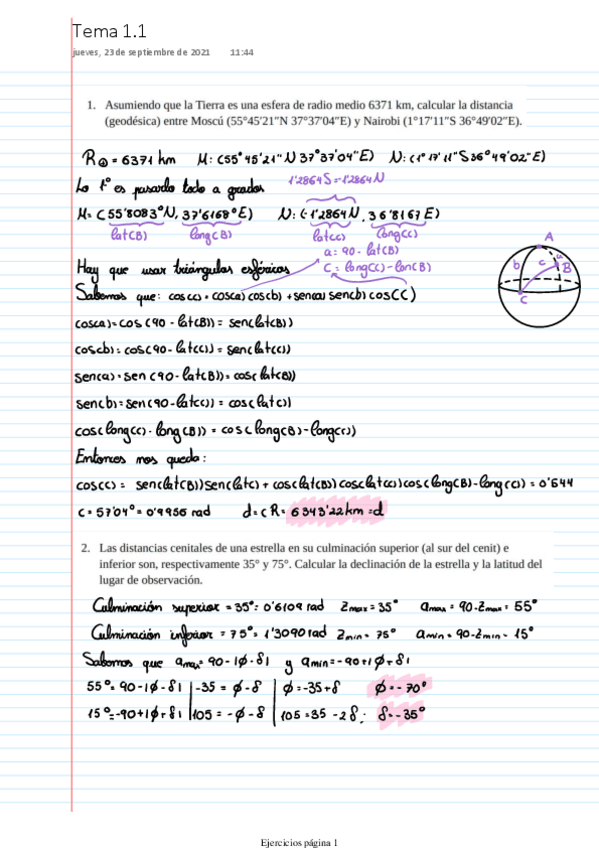 Tema 1.1
jueves, 23 de septiembre de 2021 11:44
1. Asumiendo que la Tierra es una esfera de radio medio 6371 km, calcular la distancia
(geodésica) entre Moscú (55°45′21″N 37°37′04″E) y Nairobi (1°17′11″S 36°49′02″E).
R⊕ = 6371 km M: (55°45'21"N 37°37'04"E) N: (1°17'11"S 36°49'02"E)
Lo 1º es pasarlo todo a grados 1'2864S = -1'2864N
M = (55'8083°N, 37'6168°E) N: (-1'2864N, 36'8167E)
lat(B) long(B) lat(c) long(c)
a: 90 - lat(B)
Hay que usar triángulos esféricos C = long(c) - lon(B)
Sabemos que: cos(c) = cos(a) cos(b) + sen(a) sen(b) cos(C)
A
b c a B
C
cos(a) = cos(90 - lat(B)) = sen(lat(B))
cos(b) = cos(90 - lat(c)) = sen(lat(c))
sen(a) = sen(90 - lat(B)) = cos(lat(B))
sen(b) = sen(90 - lat(c)) = cos(lat(c))
cos(long(c) - long(B)) = cos(long(B) - long(c))
Entonces nos queda:
cos(c) = sen(lat(B)) sen(lat(c)) + cos(lat(B)) cos(lat(c)) cos(long(B) - long(c)) = 0'544
c = 57'04° = 0'9956 rad d = c R = 6343'22 km = d
2. Las distancias cenitales de una estrella en su culminación superior (al sur del cenit) e
inferior son, respectivamente 35° y 75°. Calcular la declinación de la estrella y la latitud del
lugar de observación.
Culminación superior = 35° = 0'6109 rad Zmax = 35° amax = 90 - Zmax = 55°
Culminación inferior = 75° = 1'3090 rad Zmin = 75° amin = 90 - Zmin = 15°
Sabemos que amax = 90 - |ϕ - δ| y amin = -90 + |ϕ + δ|
55° = 90 - |ϕ - δ| | -35 = ϕ - δ | ϕ = -35 + δ ϕ = -70°
15° = -90 + |ϕ + δ| | 105 = -ϕ - δ | 105 = 35 - 2δ; δ = -35°
Ejercicios página 1